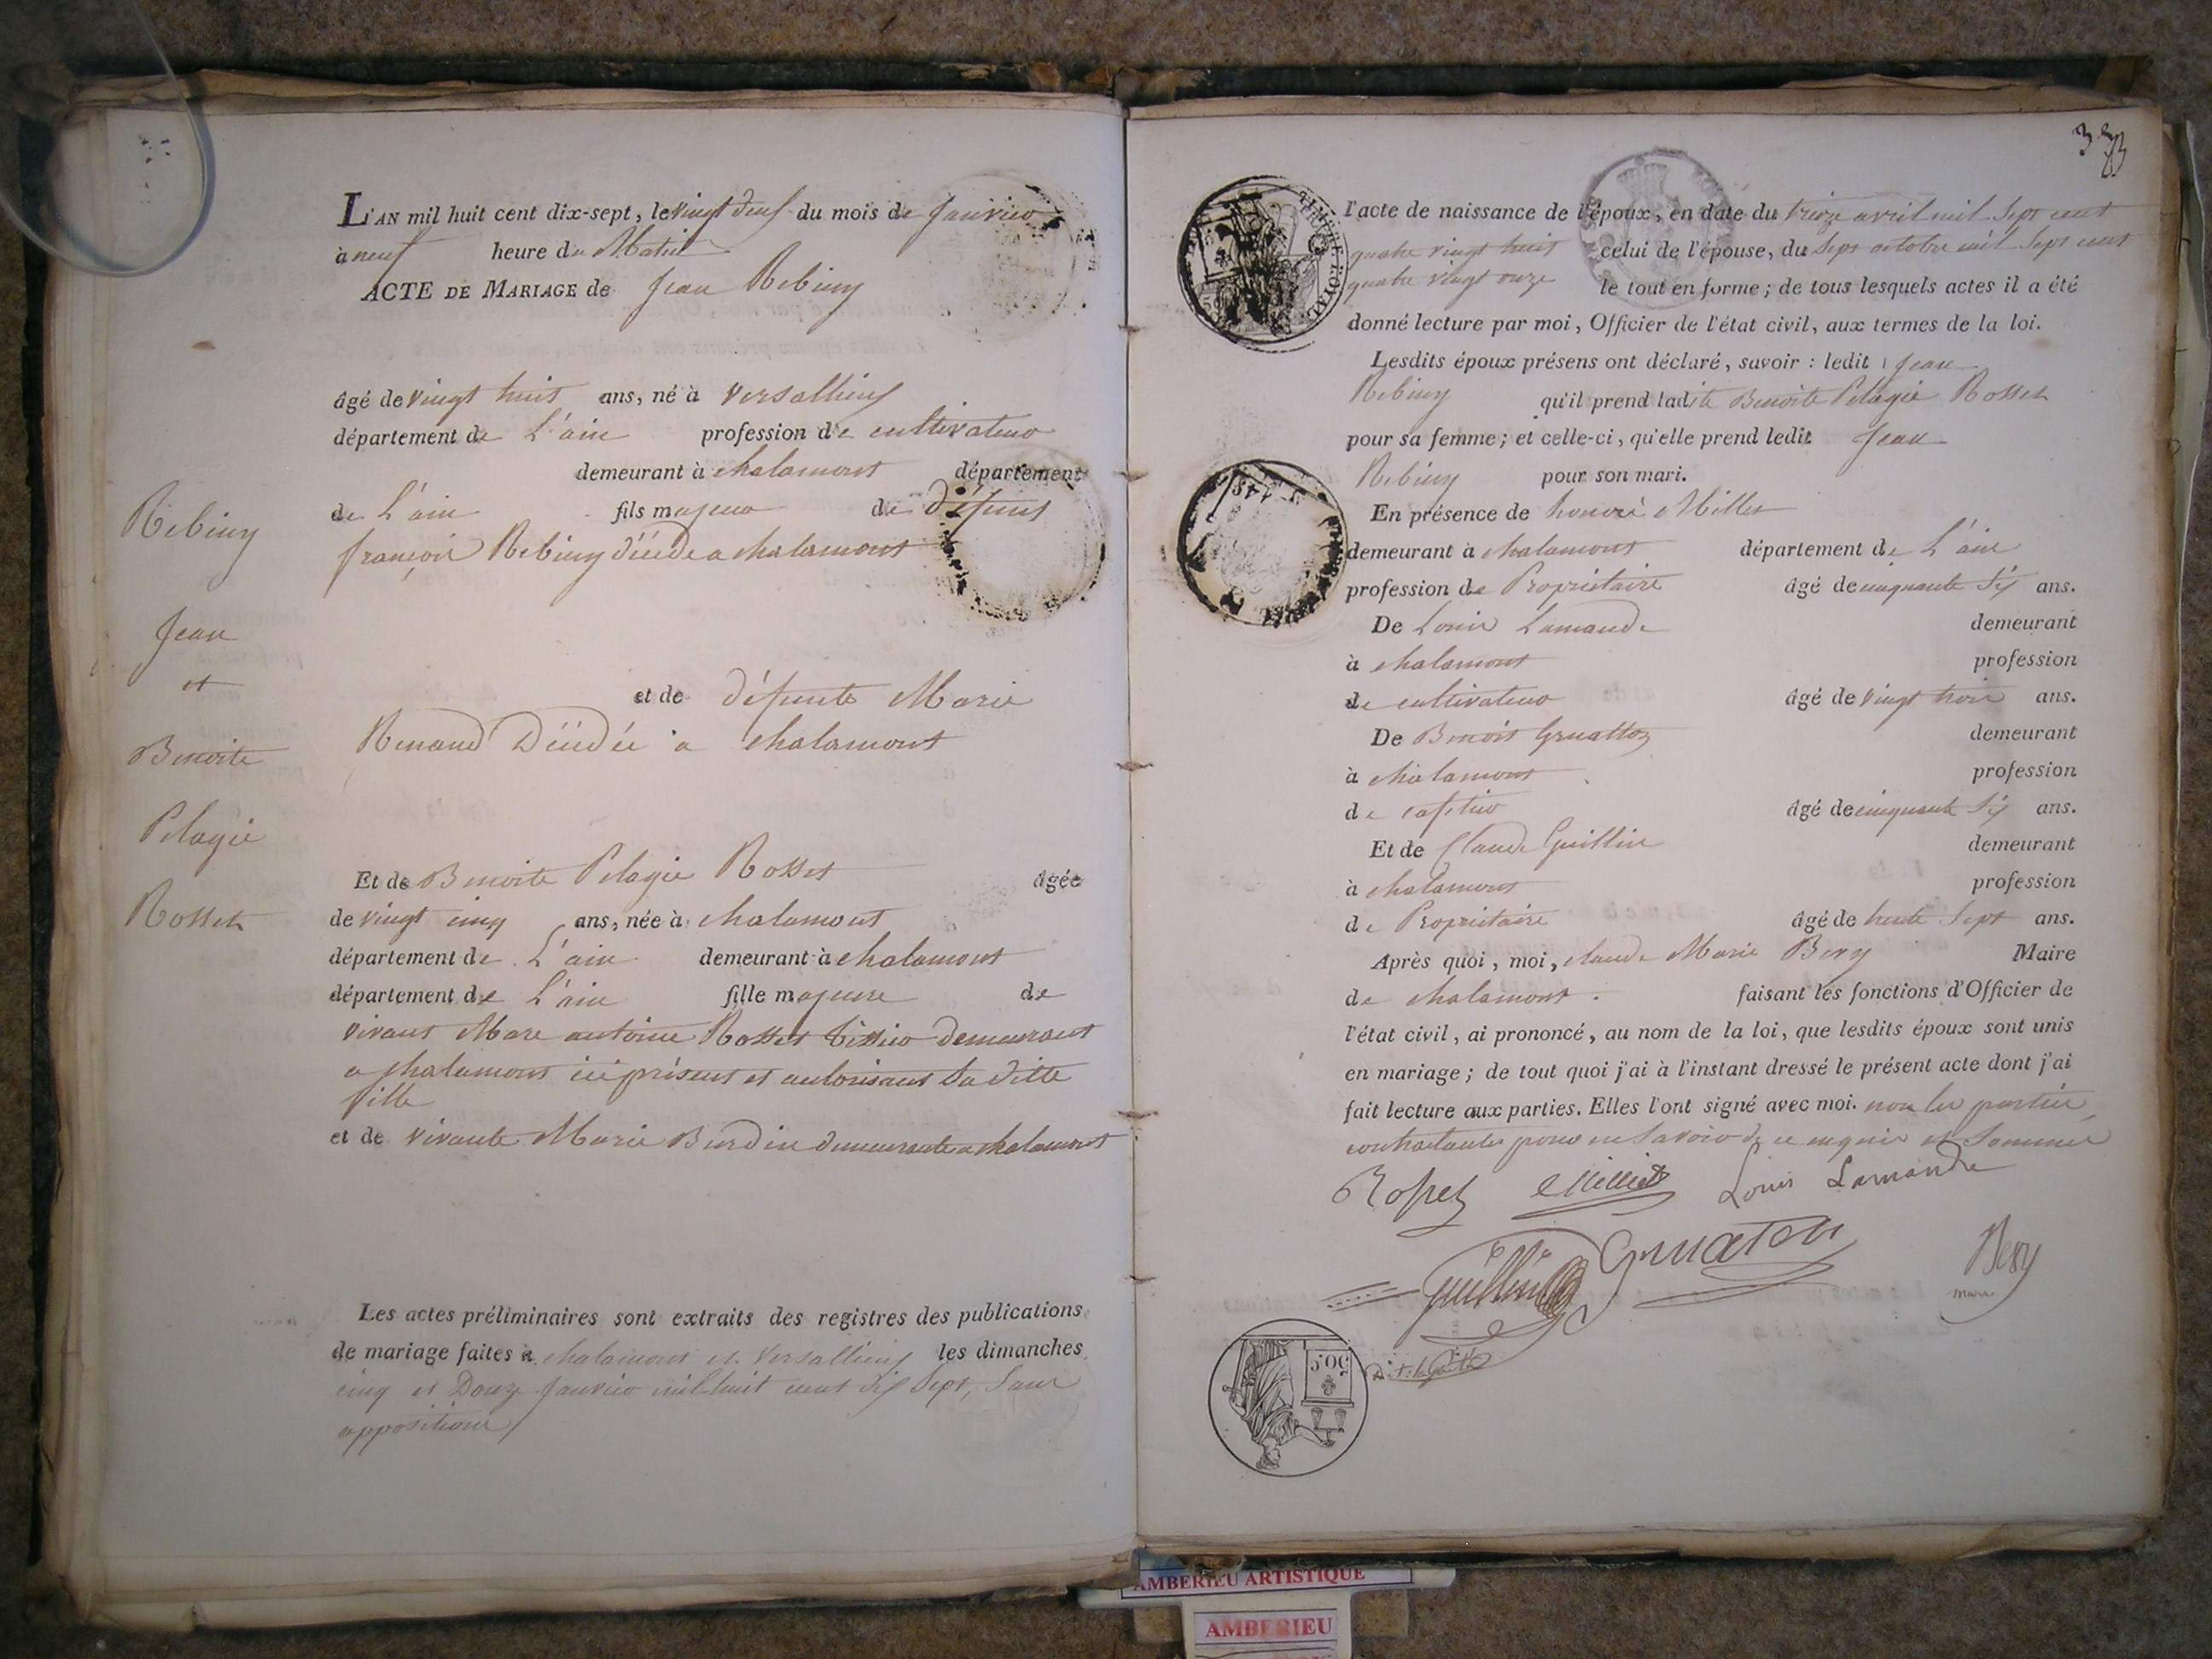 Rebiny
Jean
et
Benoite
Pelagie
Rosset
L'AN mil huit cent dix-sept, le vingt deux du mois de Janvier
à neuf heure du Matin
ACTE DE MARIAGE de Jean Rebiny
âgé de vingt huit ans, né à Versallieu
département de L'ain profession de cultivateur
demeurant à chalamont département
de L'ain fils majeur de défunt
françois Rebiny décédé a chalamont
et de défunte Marie
Renaud Décédée a chalamont
Et de Benoite Pelagie Rosset âgée
de vingt cinq ans, née à chalamont
département de L'ain demeurant à chalamont
département de L'ain fille majeure de
vivant Marc antoine Rosset tissier demeurant
a chalamont ici présent et autorisant sa ditte
fille
et de vivante Marie Burdin demeurante a chalamont
Les actes préliminaires sont extraits des registres des publications
de mariage faites à chalamont et Versallieu les dimanches
cinq et Douze Janvier mil huit cent dix sept, sans
oppositions
l'acte de naissance de l'époux, en date du treize avril mil sept cent
quatre vingt huit celui de l'épouse, du sept octobre mil sept cent
quatre vingt onze le tout en forme; de tous lesquels actes il a été
donné lecture par moi, Officier de l'état civil, aux termes de la loi.
Lesdits époux présens ont déclaré, savoir : ledit Jean
Rebiny qu'il prend ladite Benoite Pelagie Rosset
pour sa femme; et celle-ci, qu'elle prend ledit Jean
Rebiny pour son mari.
En présence de honoré Millet
demeurant à chalamont département de L'ain
profession de Propriétaire âgé de cinquante six ans.
De Louis Lamande demeurant
à chalamont profession
de cultivateur âgé de vingt trois ans.
De Benoit Gruatton demeurant
à chalamont profession
de âgé de cinquante six ans.
Et de Claude Guillin demeurant
à chalamont profession
de Propriétaire âgé de trente sept ans.
Après quoi, moi, claude Marie Bery Maire
de chalamont. faisant les fonctions d'Officier de
l'état civil, ai prononcé, au nom de la loi, que lesdits époux sont unis
en mariage; de tout quoi j'ai à l'instant dressé le présent acte dont j'ai
fait lecture aux parties. Elles l'ont signé avec moi. non les parties
contractantes pour ne savoir de ce enquis et sommés
Rosset Millet Louis Lamande
Guillin Gruaton Bery
maire
50 C
AMBERIEU ARTISTIQUE
AMBERIEU